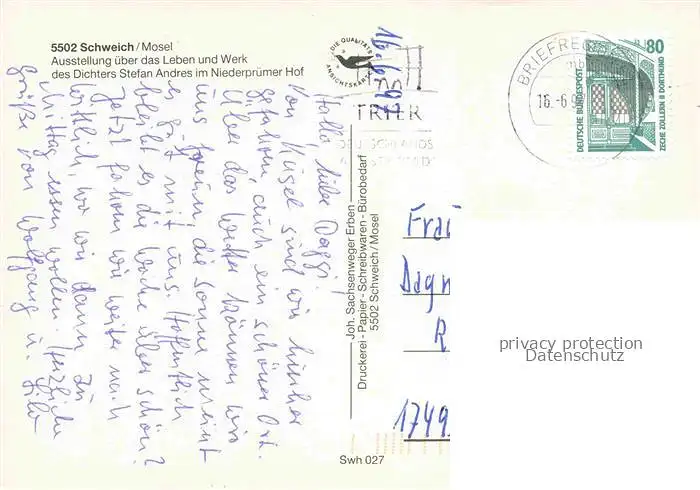 5502 Schweich/Mosel
Ausstellung über das Leben und Werk
des Dichters Stefan Andres im Niederprümer Hof
DIE QUALITÄTS
ANSICHTSKARTE
16.6.92
TRIER
BRIEF
16.-6.9
80
DEUTSCHE BUNDESPOST
ZECHE ZOLLERN II DORTMUND
Hallo, liebe Daggi!
Von Kusel sind wir hierher
gefahren, auch ein schöner Ort.
Über das Wetter können wir
uns freuen, die Sonne meint
es gut mit uns. Hoffentlich
bleibt es die Woche über schön?
Jetzt fahren wir weiter nach
Wittlich, wo wir dann zu
Mittag essen wollen. Herzliche
Grüße von Wolfgang u.
Joh. Sachsenweger Erben
Druckerei - Papier - Schreibwaren - Bürobedarf
5502 Schweich/Mosel
Frau
Dagm
R
1749
Swh 027
privacy protection
Datenschutz